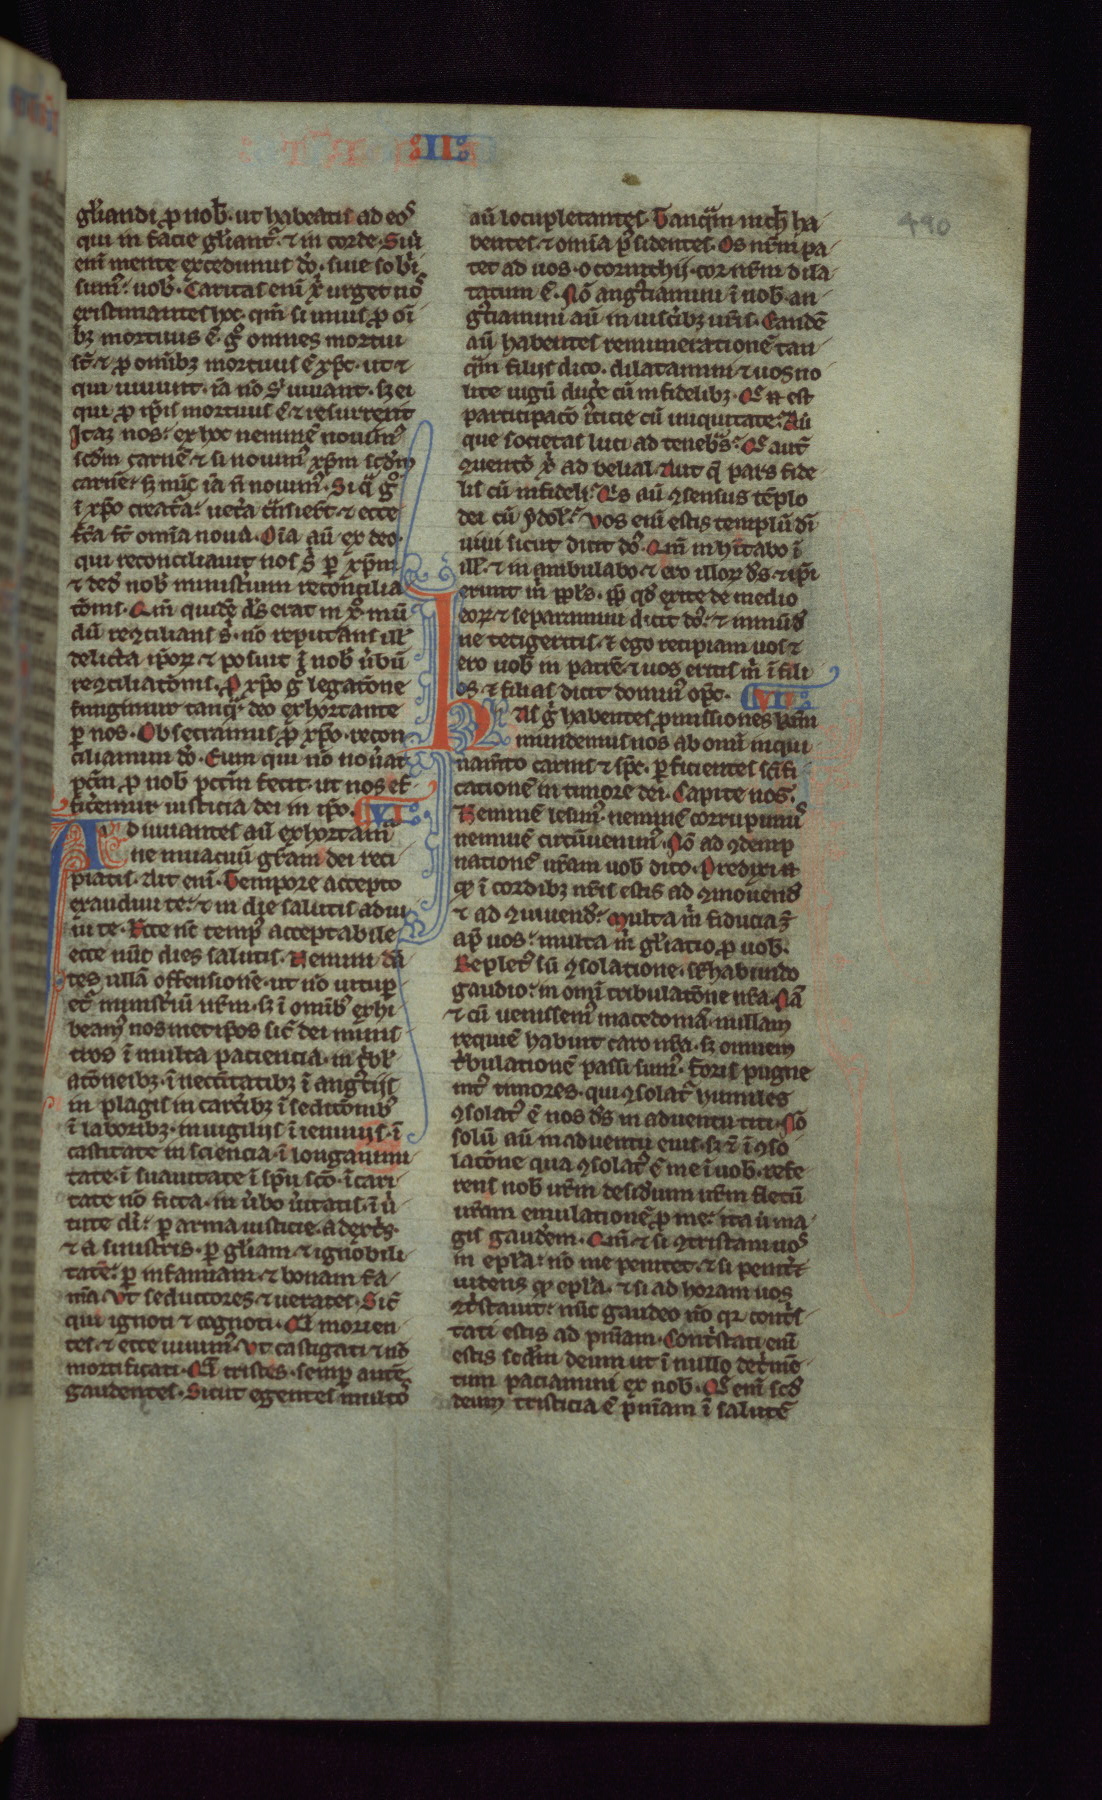 II
gl̅iandi ꝓ nob̅. ut habeatis ad eos
qui in facie gl̅iant̉. ⁊ in corde. Siu̾
eni̅ mente excedimus do̅. siue sobri
sum̉. uob̅. Caritas eni̅ xp̅i urget nos
eristimantes hoc. qm̅ si unus ꝓ oi̅
bꝫ mortuus e̅. g̊ omnes mortui
st̅. ⁊ ꝓ omibꝫ mortuus e̅ xp̅c. ut ⁊
qui uiuunt. ia̅ no̅ s̾ uiuant. sꝫ ei
qui ꝓ ip̅is mortuus e̅ ⁊ resurrexit
Itaqꝫ nos. ex hoc nemine̅ nouim̉
scd̅m carne̅. ⁊ si nouim̉ xp̅m scd̅m
carne̅. sꝫ nu̅c ia̅ n̅ nouim̉. Si q̅ g̊
i̅ xp̅o creat̉a. uet̉a t̉nsier̅t. ⁊ ecce
fc̅a st̅ omia noua. Oi̅a au̅ ex deo
qui reconciliauit nos s̾ ꝑ xp̅m
⁊ ded̾ nob̅ minist̾ium reconcilia
to̅nis. Qm̅ quide̅ d̅s erat in xp̅o mu̅
du̅ reꝯcilians s̾. no̅ reputans ill̾
delicta ip̅oꝝ ⁊ posuit i̅ nob̅ u̾bu̅
reꝯciliato̅nis. P̲ xp̅o g̊ legato̅ne
fungimur tanq̅ deo exhortante
ꝑ nos. Obsecramus ꝓ xp̅o. recon
ciliamini do̅. Eum qui no̅ nou̾at
pcc̅m ꝓ nob̅ pcc̅m fecit. ut nos ef
fic̾emur iusticia dei in ip̅o. VI
Adiuuantes au̅ exhortam̉
ne in uacuu̅ gr̅am dei reci
piatis. Ait eni̅. Tempore accepto
exaudiui te. ⁊ in die salutis adiu
ui te. Ecce nc̅ temp̉ acceptabile
ecce nu̅c dies salutis. Nemini da̅
tes ulla̅ offensione̅. ut no̅ uitup̲
et̉ minist̾iu̅ nr̅m. sꝫ i̅ omibꝰ exhi
beam̉ nosmetip̅os sic̅ dei minis
tros i̅ multa paciencia. in t̾bul̾
ato̅neibꝫ. i̅ neccitatibꝫ i̅ angustiis
in plagis in carc̾ibꝫ i̅ sedito̅nibꝰ
i̅ laboribꝫ. in uigiliis i̅ ieiuniis. i̅
castitate in sciencia. i̅ longanimi
tate. i̅ suauitate i̅ sp̅u sc̅o. i̅ cari
tate no̅ ficta. in u̾bo u̾itatis. i̅ u̾
tute di̅. ꝑ arma iusticie. a dext̾s
⁊ a sinistris. ꝑ gl̅iam ⁊ ignobili
tate̅. ꝑ infamiam. ⁊ bonam fa
ma̅ Vt seductores. ⁊ ueraces. Sic̅
qui ignoti ⁊ cogniti. Qi̅ morien
tes. ⁊ ecce uiuim̉. Vt castigati ⁊ no̅
mortificati. Qi̅ tristes. semp̲ aute̅
gaudentes. Sicut egentes multos
au̅ locupletantes. Tanq̅m nich̅ ha
bentes. ⁊ omia p̾sidentes. Os nr̅m pa
tet ad uos. o corinthii. cor nr̅m dila
tatum e̅. No̅ angustiamini i̅ nob̅. an
gustiamini au̅ in uisc̾ibꝫ ur̅is. Eande̅
au̅ habentes remuneratione̅ tan
q̅m filiis dico. dilatamini ⁊ uos no
lite iugu̅ duc̾e cu̅ infidelibꝫ. Qe̅ n̅ est
participaco̅ iusticie cu̅ iniquitate. Au̅
que societas luci ad tenebras. Qe̅ aut̅
ꝯuento̅ xp̅i ad belial. Aut q̅ pars fide
lis cu̅ infideli. Qs au̅ ꝯsensus te̅plo
dei cu̅ ydol̾. Vos eni̅ estis templu̅ di̅
uiui sicut dicit do̅s. Qm̅ inh̾itabo i̅
ill̾. ⁊ in ambulabo. ⁊ ero illoꝝ d̅s. ⁊ ip̅i
erunt m̾ pp̅ls. ꝓp̅ qd̅ exite de medio
eoꝝ. ⁊ separamini dicit do̅s. ⁊ inmu̅d̅
ne tetigeritis. ⁊ ego recipiam uos ⁊
ero uob̅ in patre̅. ⁊ uos eritis m̾ i̅ fili
os. ⁊ filias dicit domin̉ op̅c. VII
Has g̊ habentes ꝓmissiones kmi
mundemus nos ab omi̅ inqui
nam̅to carnis ⁊ sp̅c. ꝑficientes sc̅ifi
catione̅ in timore dei. Capite nos.
Nemine̅ lesim̉. nemine̅ corrupimus
nemine̅ circu̅uenim̉. No̅ ad ꝯdemp
natione̅ ur̅am uob̅ dico. Predixi n̅
qꝫ i̅ cordibꝫ nr̅is estis ad ꝯmoriend̅
⁊ ad ꝯuiuend̅. Multa m̾ fiducia ÷
ap̅ uos. multa m̾ gl̅iatio ꝓ uob̅.
Replet̉ su̅ ꝯsolatione. suphabundo
gaudio. in omi̅ tribulato̅ne nr̅a. Na̅
⁊ cu̅ uenissem̉ macedonia̅. nullam
requie̅ habuit caro nr̅a. sꝫ omnem
t̾bulatione̅ passi sum̉. Foris pugne
int̉ timores. qui ꝯsolat̉ humiles
ꝯsolat̉ e̅ nos d̅s in aduentu titi. No̅
solu̅ au̅ in aduentu eius. sꝫ ⁊ i̅ ꝯso
lato̅ne qua ꝯsolat̉ e̅ me i̅ uob̅. refe
rens nob̅ ur̅m desid̾ium ur̅m fletu̅
ur̅am emulatione̅ ꝓ me. ita u̾ ma
gis gaud̾em. Qm̅ ⁊ si ꝯtristaui uos
in epl̅a. no̅ me penitet. ⁊ si penit̾et
uidens qꝫ epl̅a. ⁊ si ad horam uos
ꝯt̾stauit. nu̅c gaudeo no̅ qꝛ cont̾s
tati estis ad pni̅am. Cont̾stati eni̅
estis scd̅m deum ut i̅ nullo det̾me̅
tum paciamini ex nob̅. Qe̅ eni̅ scd̅
deum tristicia e̅ pni̅am i̅ salute̅
490